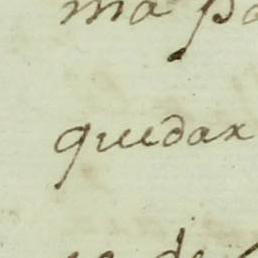 ma pa
quedar
de